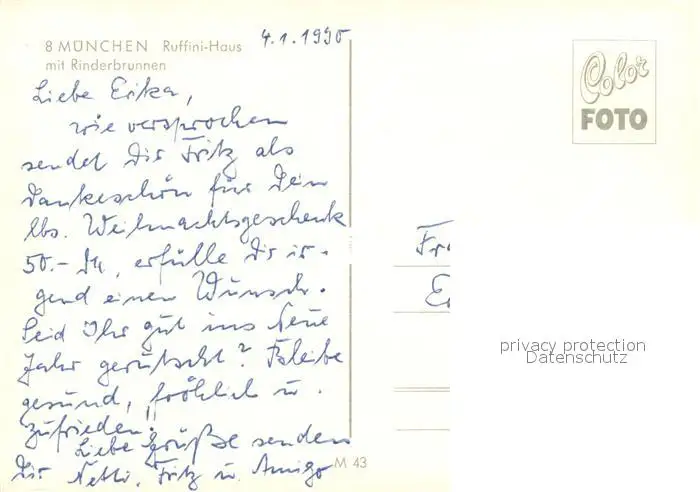 8 MÜNCHEN Ruffini-Haus
mit Rinderbrunnen
4.1.1990
Liebe Erika,
wie versprochen
sendet Dir Fritz als
Dankeschön für Dein
lbs. Weihnachtsgeschenk
50.- DM, erfülle Dir ir-
gend einen Wunsch.
Seid Ihr gut ins Neue
Jahr gerutscht? Bleibe
gesund, fröhlich u.
zufrieden!!
Liebe Grüße senden
Dir Netti, Fritz u. Amigo
M 43
Color
FOTO
Fr
E
privacy protection
Datenschutz